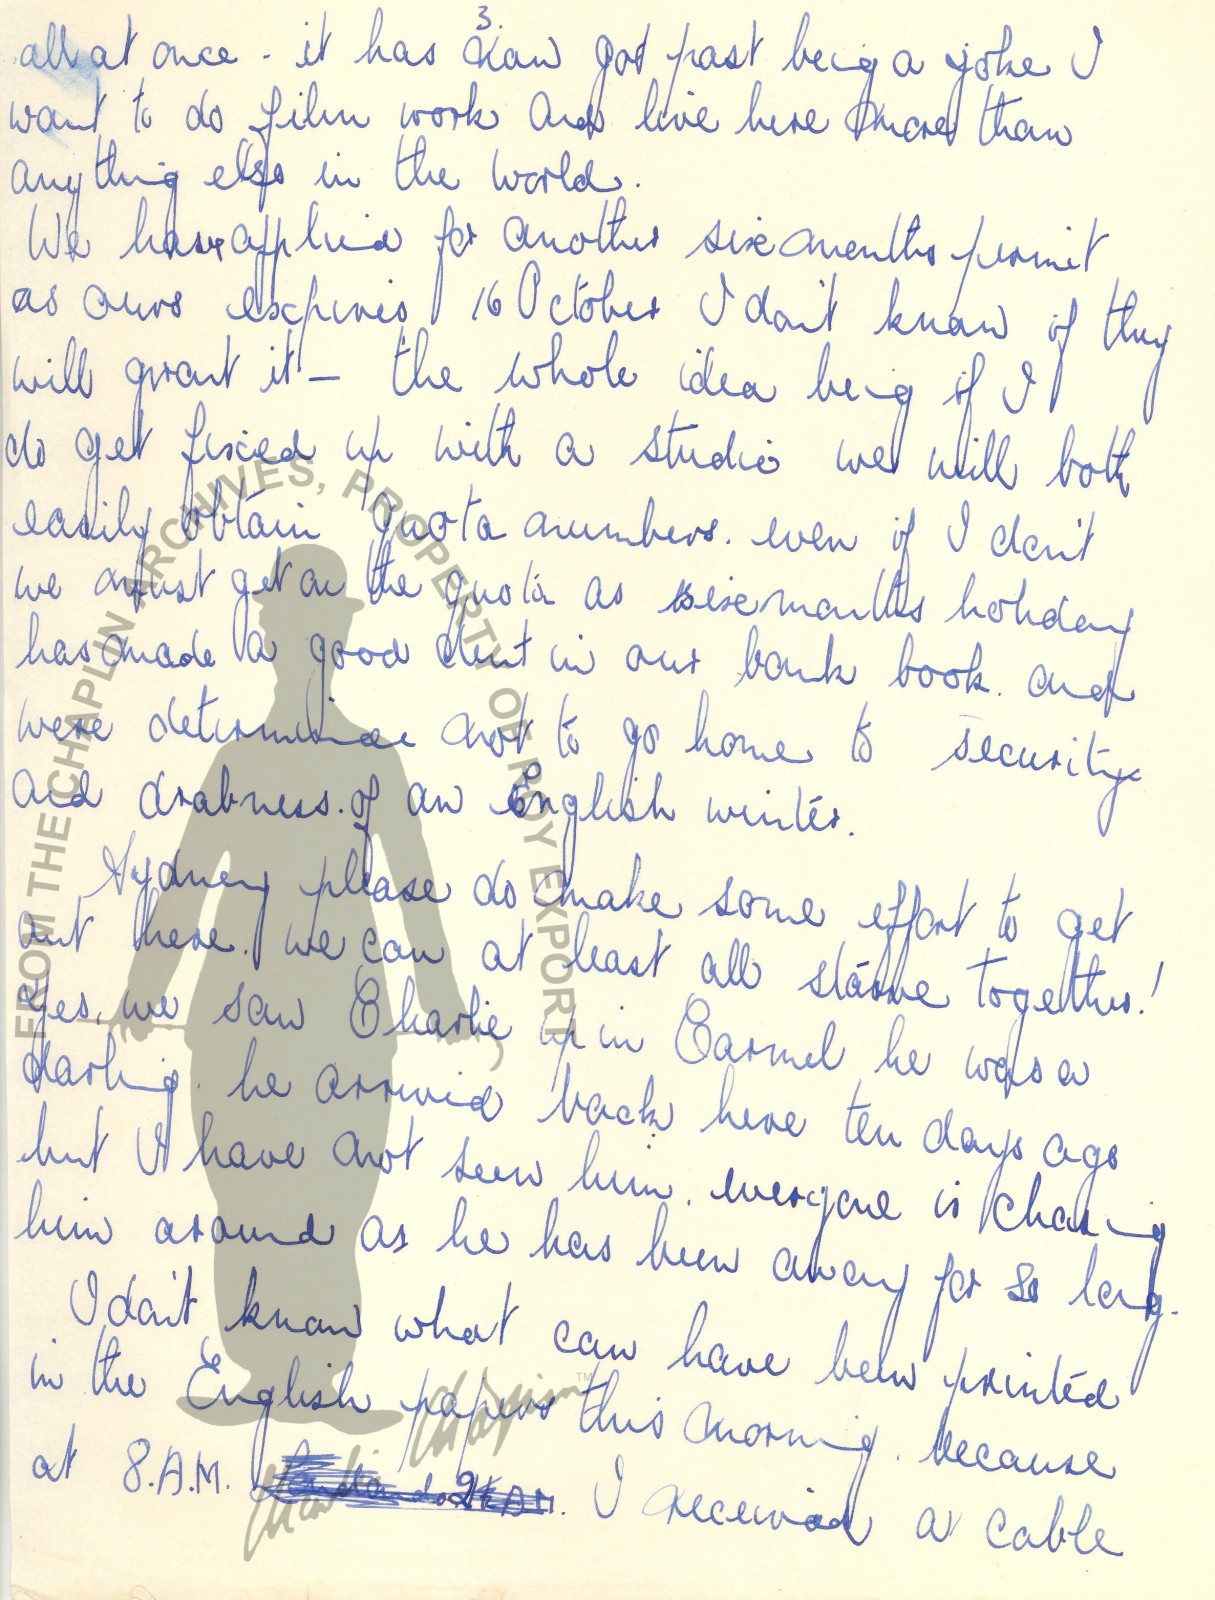 3.
all at once - it has now got past being a joke I
want to do film work and live here more than
anything else in the world.
We have applied for another six months permit
as ours expires 16 October I don't know if they
will grant it - the whole idea being if I
do get fixed up with a studio we will both
easily obtain quota numbers. even if I don't
we must get on the quota as six months holiday
has made a good dent in our bank book. and
were determined not to go home to security
and drabness. of an English winter.
Sydney please do make some effort to get
out here. we can at least all starve together!
Yes, we saw Charlie up in Carmel he was a
darling. he arrived back here ten days ago
but I have not seen him. everyone is chasing
him around as he has been away for so long.
I don't know what can have been printed
in the English papers this morning. because
at 8.A.M. I received a cable
FROM THE CHAPLIN ARCHIVES, PROPERTY OF ROY EXPORT
Charlie Chaplin ™